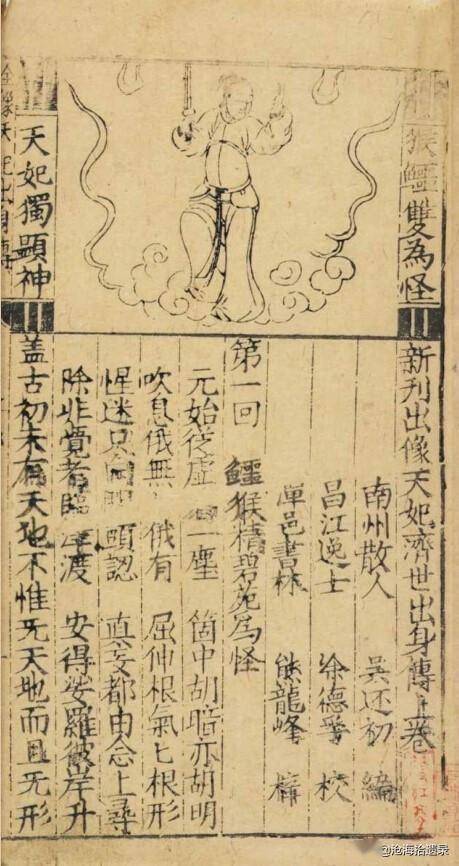 猴鱷雙為怪
天妃獨顯神
新刊出像天妃濟世出身傳上卷
南州散人 吳还初 編
昌江逸士 余德孚 校
潭邑書林 熊龍峰 梓
第一回 鱷猴精碧苑為怪
元始從虛一塵 箇中胡暗亦胡明
吹息俄無俄有 屈伸根氣匕根形
惺迷只向頭認 真妄都由念上尋
除非覺者臨渡 安得娑羅彼岸升
盖古初未有天地不惟旡天地而且旡形
@沧海拾遗录